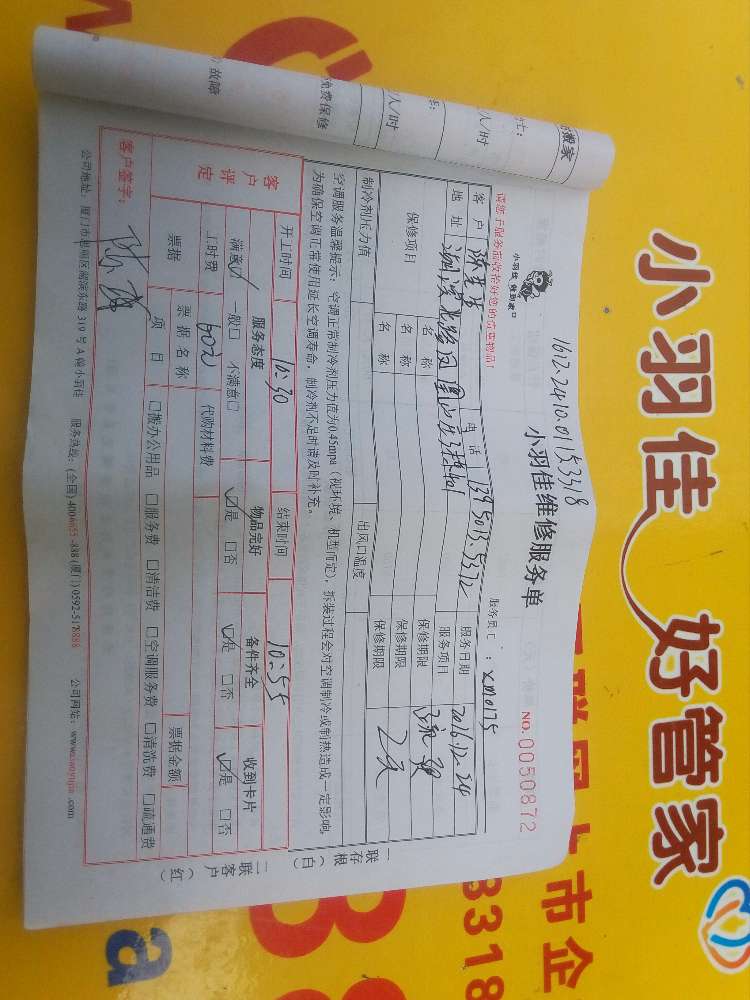 小羽佳 好管家
1612-2410-01153318
小羽佳 做到家
小羽佳维修服务单
NO.0050872
请您于服务前收拾好您的贵重物品!
服务员工: xm0175
客户 电话 13950135372 服务日期 2016.12.24
地址 服务项目
保修项目 名称 保修期限
名称 保修期限 2天
制冷剂压力值 出风口温度
空调服务温馨提示: 空调正常制冷剂压力值为0.45mpa (视环境、机型而定), 拆装过程会对空调制冷或制热造成一定影响,
为确保空调正常使用延长空调寿命, 制冷剂不足时请及时补充。
开工时间 10:30 结束时间 10:55
客户评定 服务态度 物品完好 备件齐全 收到卡片
满意☑ 一般□ 不满意□ ☑是 □否 ☑是 □否 ☑是 □否
工时费 60元 代购材料费
票据 票据名称 票据金额
项目 □搬办公用品 □服务费 □清洁费 □空调服务费 □清洗费 □疏通费
客户签字:
公司地址: 厦门市思明区湖滨东路319号A幢小羽佳 服务热线: (全国) 400-6655-888 (厦门) 0592-5178886 公司网站: www.xiaoyujia.com
一联存根(白)
二联客户(红)
搬家
人/时
人/时
免费保修
故障
3318
上市企
a